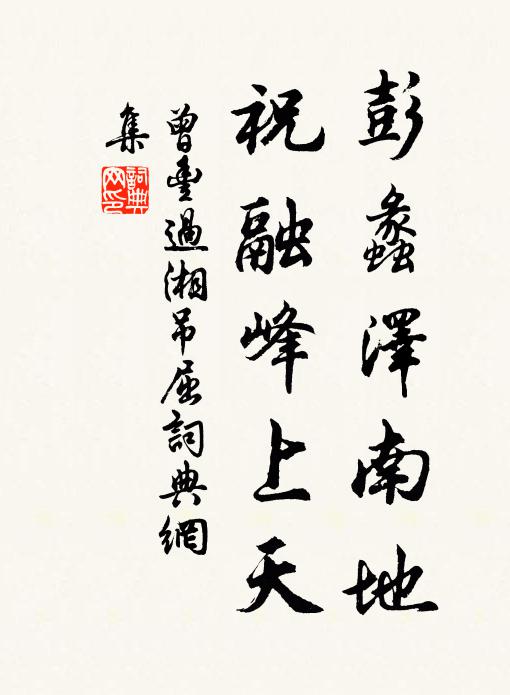 彭蠡澤南地
祝融峰上天
曾豐過湘吊屈詞典網
集
詞典
网印